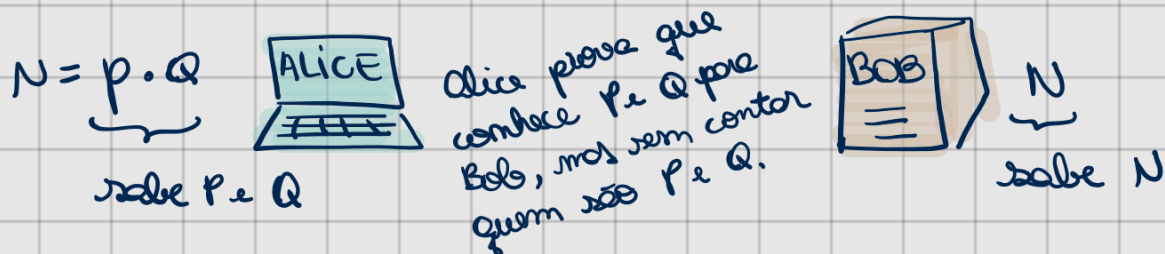 N = p · Q
sabe P e Q
ALICE
Alice prova que
conhece P e Q para
Bob, mas sem contar
quem são P e Q.
BOB
N
sabe N